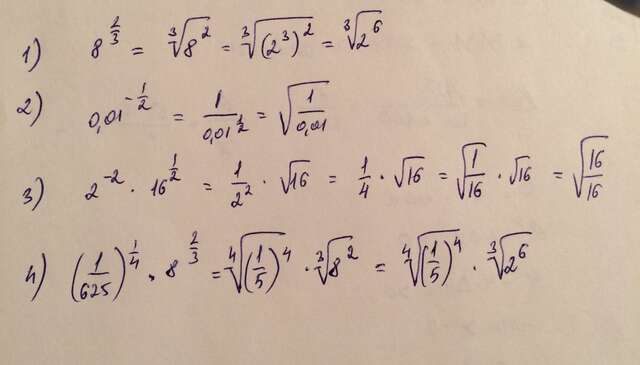 1) 8^{2/3} = ∛(8^2) = ∛((2^3)^2) = ∛(2^6)
2) 0,01^{-1/2} = 1/(0,01^{1/2}) = √(1/0,01)
3) 2^{-2} · 16^{1/2} = 1/2^2 · √16 = 1/4 · √16 = √(1/16) · √16 = √(16/16)
4) (1/625)^{1/4} · 8^{2/3} = ∜((1/5)^4) · ∛(8^2) = ∜((1/5)^4) · ∛(2^6)